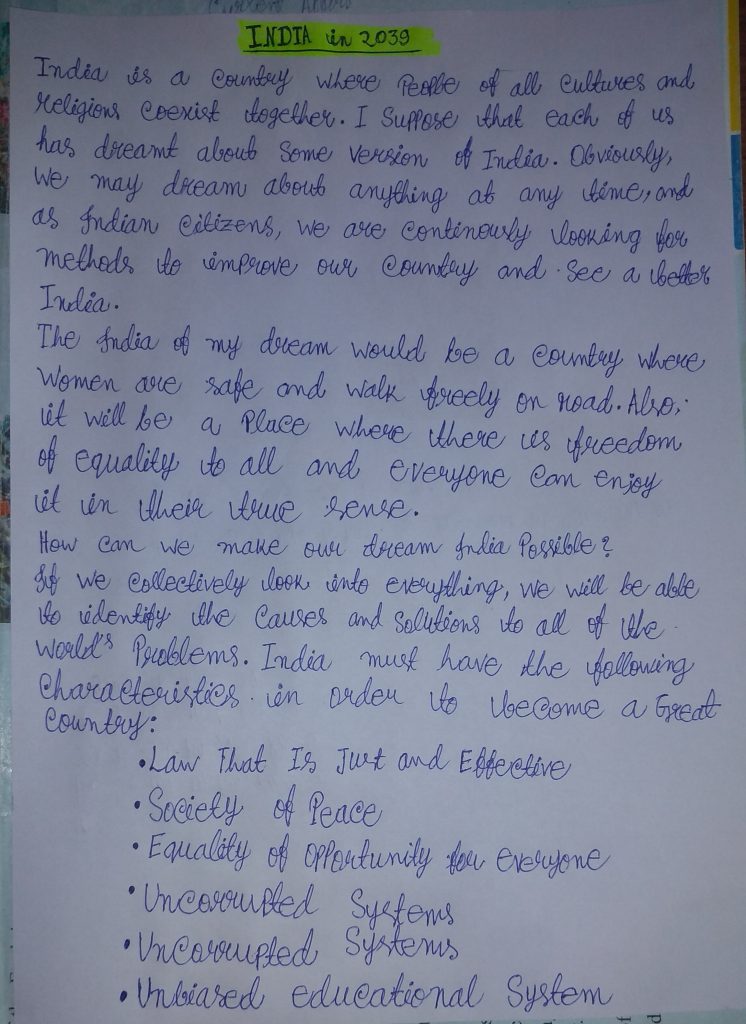 INDIA in 2039
India is a Country where People of all cultures and
religions coexist together. I Suppose that each of us
has dreamt about Some version of India. Obviously,
We may dream about anything at any time, and
as Indian Citizens, we are continously looking for
methods to improve our Country and See a better
India.
The India of my dream would be a Country where
Women are safe and walk freely on road. Also,
it will be a Place where there is freedom
of equality to all and everyone can enjoy
it in their true sense.
How can we make our dream India Possible?
If we collectively look into everything, we will be able
to identify the causes and solutions to all of the
world's Problems. India must have the following
Characteristics in order to become a Great
Country:
• Law That Is Just and Effective
• Society of Peace
• Equality of opportunity for everyone
• Uncorrupted Systems
• Uncorrupted Systems
• Unbiased educational System